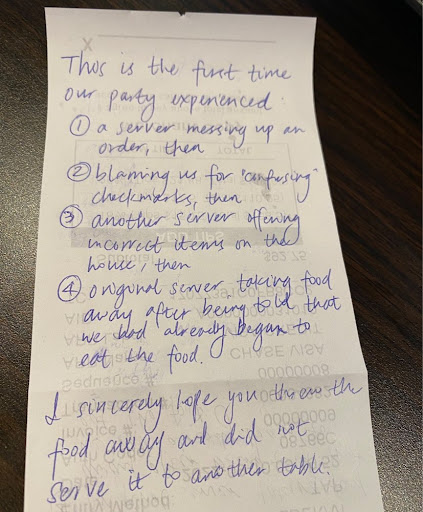 X
This is the first time
our party experienced:
① a server messing up an
order, then
② blaming us for "confusing"
checkmarks, then
③ another server offering
incorrect items on the
house, then
④ original server taking food
away after being told that
we had already began to
eat the food.
I sincerely hope you threw the
food away and did not
serve it to another table.